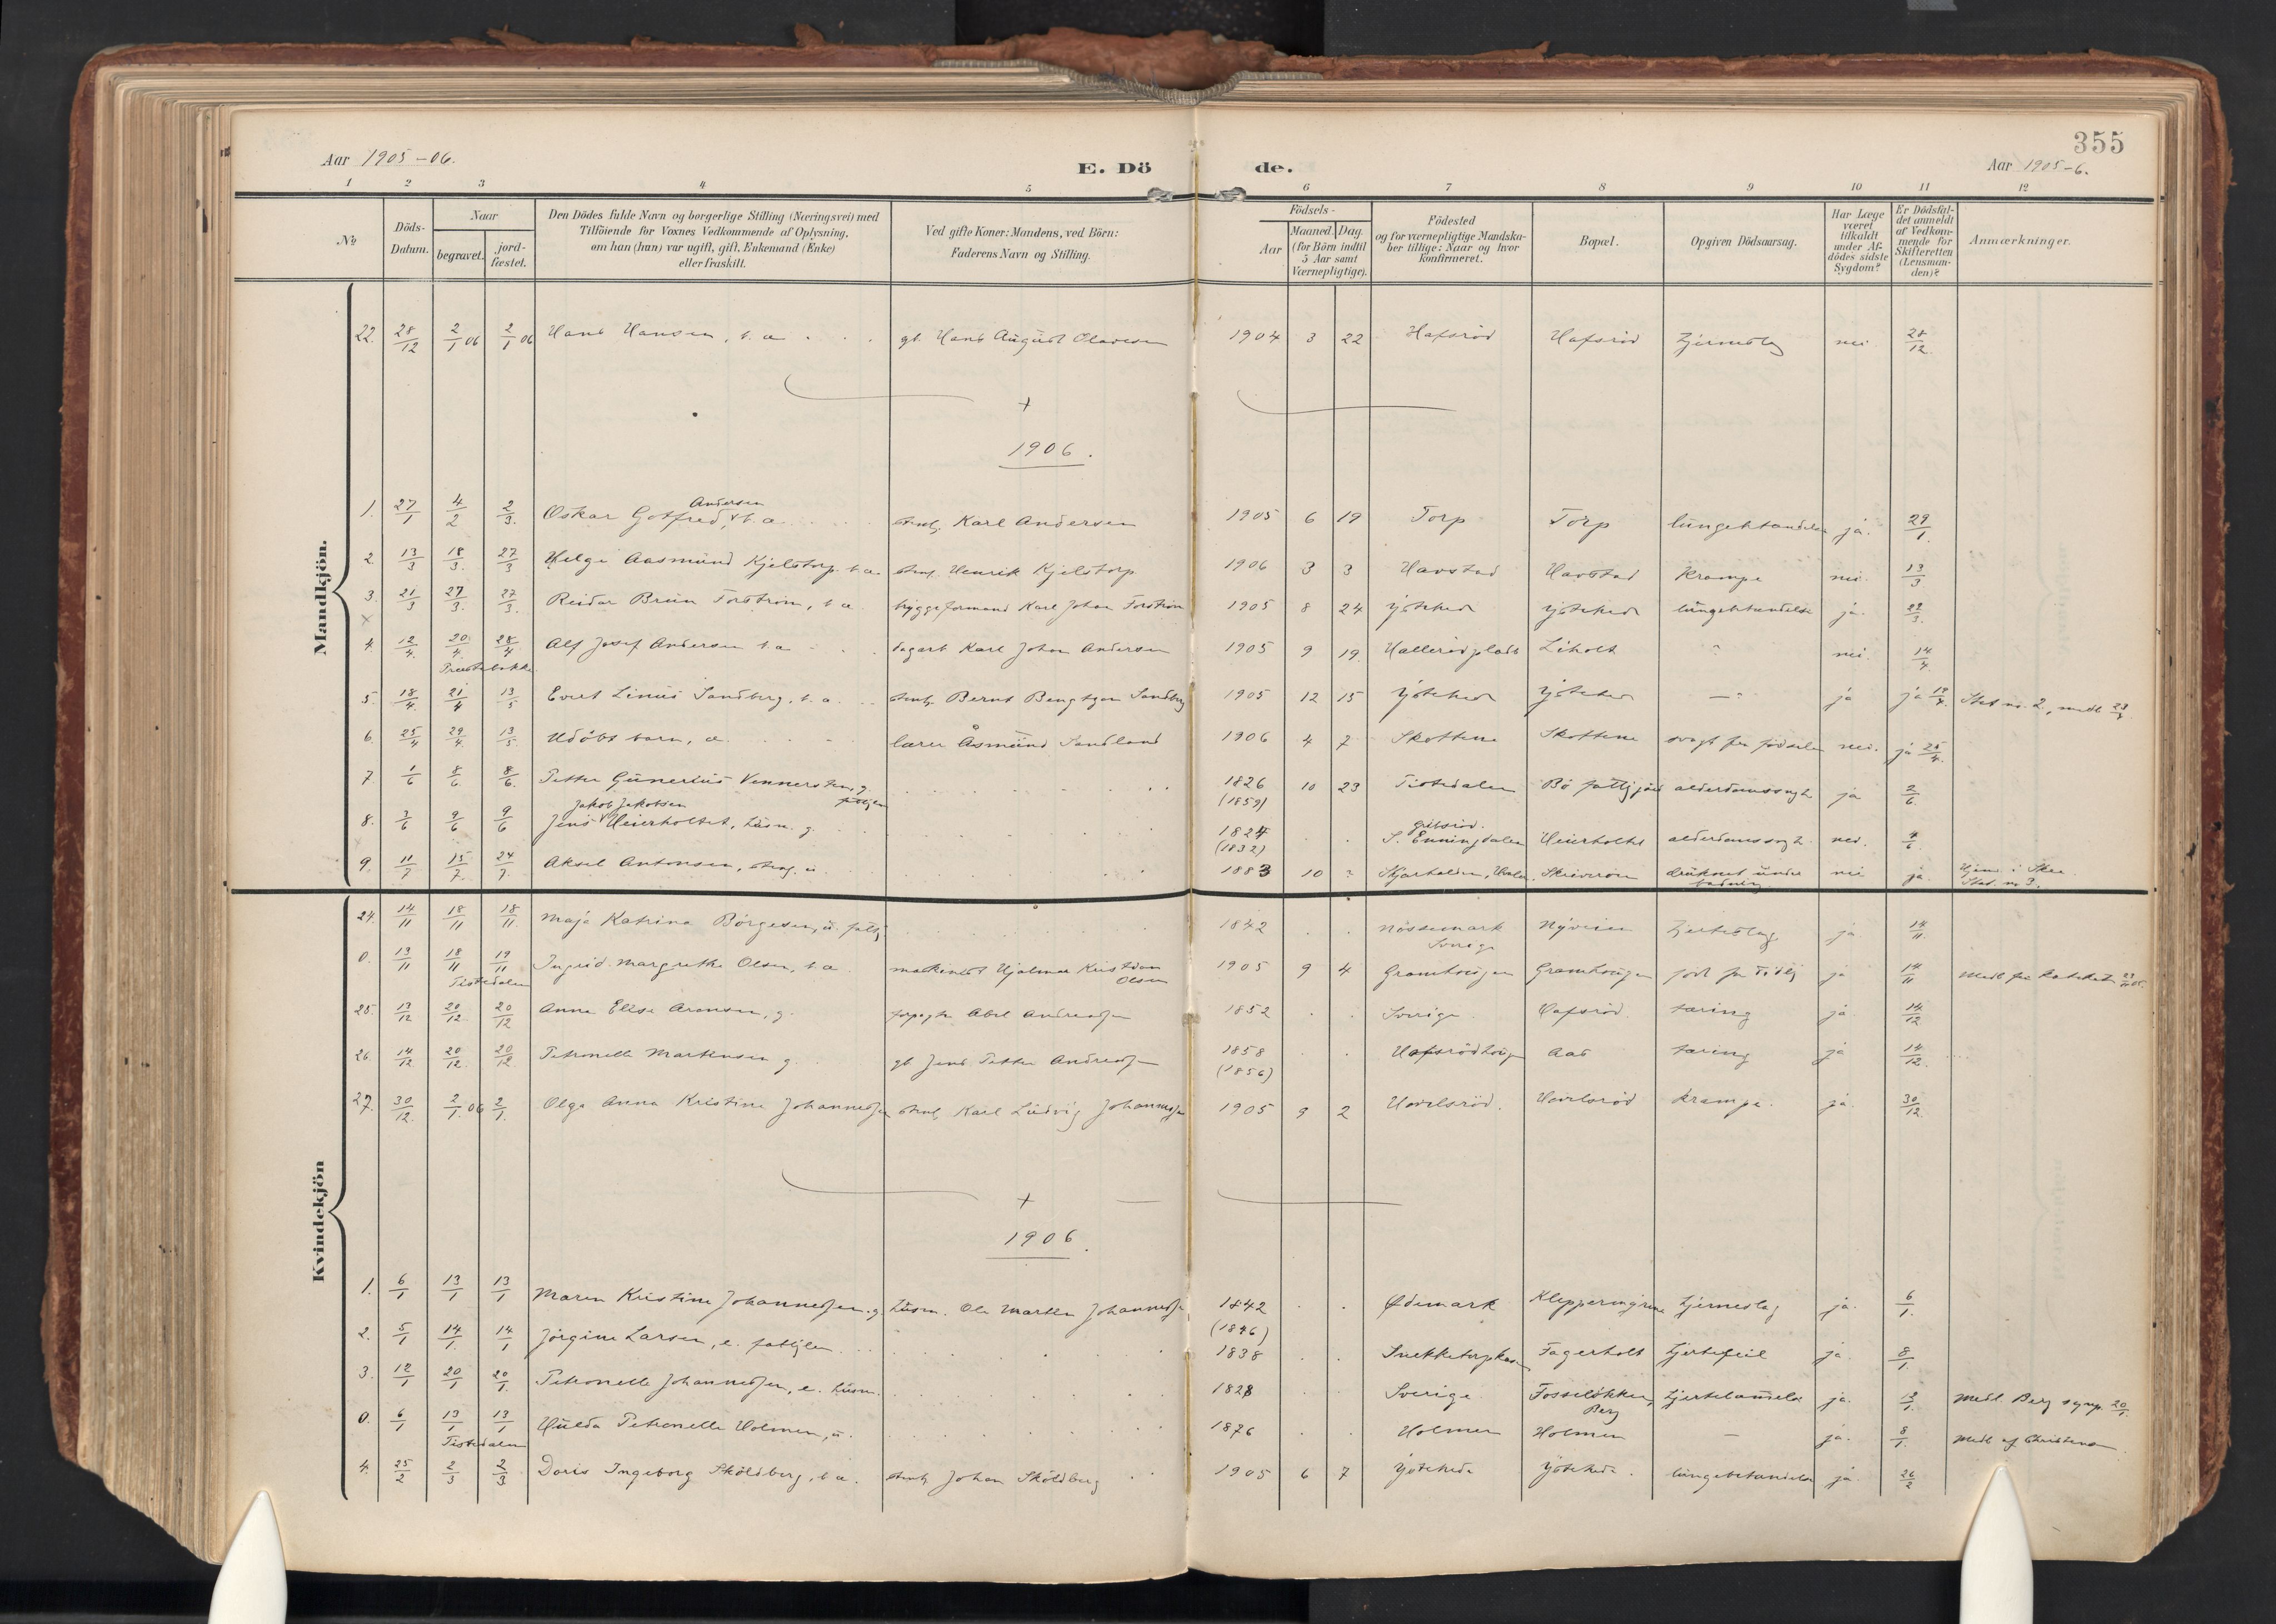 355
Aar 1905-06.
E. Dö de.
Aar 1905-6.
1 2 3 4 5 6 7 8 9 10 11 12
№
Döds-
Datum.
Naar
begravet.
jord-
fæstet.
Den Dödes fulde Navn og borgerlige Stilling (Næringsvei) med
Tilföiende for Voxnes Vedkommende af Oplysning,
om han (hun) var ugift, gift, Enkemand (Enke)
eller fraskilt.
Ved gifte Koner: Mandens, ved Börn:
Faderens Navn og Stilling.
Födsels-
Aar
Maaned. Dag.
(for Börn indtil
5 Aar samt
Værnepligtige).
Födested
og for værnepligtige Mandska-
ber tillige: Naar og hvor
konfirmeret.
Bopæl.
Opgiven Dödsaarsag.
Har Læge
været
tilkaldt
under Af-
dödes sidste
Sygdom?
Er Dödsfal-
det anmeldt
af Vedkom-
mende for
Skifteretten
(Lensman-
den)?
Anmærkninger.
Mandkjön.
22. 28/12 2/1 06 2/1 06 Hans Hansen, b. a gb. Hans August Olavesen 1904 3 22 Hafsröd Hafsröd Hjerneslag nei 28/12
1906.
Andersen
1. 27/1 4/2 2/3. Oskar Gotfred, b. a. stenh. Karl Andersen 1905 6 19 Torp Torp lungebetændelse ja. 29/1
2. 13/3 18/3. 27/3 Helge Aasmund Kjelstorp b. a. stenh. Henrik Kjelstorp 1906 3 3 Havstad Havstad Krampe nei. 13/3
3. 21/3 27/3. 27/3. Reidar Brun Forström, b a. byggeformand Karl Johan Forström 1905 8 24 lungebetændelse ja. 22/3.
4. 12/4. 20/4. 28/4 Alf Josef Andersen b. a dagarb. Karl Johan Andersen 1905 9 19. Hallerödplads Liholt " nei. 14/4.
Præstebakke
5. 18/4. 21/4 13/5 Evert Linus Sandberg, b. a. stenh. Bernt Bengtson Sandberg 1905 12 15 — " ja ja 19/4. Stat no. 2, medl
6. 25/4 29/4. 13/5 Udöbt barn, a lærer Åsmund Sandland 1906 4 7 Skottene Skottene svagt fra födselen nei. ja 25/4.
7. 1/6 8/6 8/6. Petter Gunerius Vennersten, g. fattiglem 1826 (1859) 10 23 Tistedalen Bö fattiggård alderdomssvagh. ja 2/6.
Jakob Jakobsen
8. 3/6 9/6 9/6 Jens Heierholtet, husm. g. 1824 (1832) S. Enningdalen Heierholtet alderdomssvagh. nei. 4/6.
9. 11/7 15/7. 24/7. Aksel Antonsen, stenh. u. 1883 10 ? Skjærhalden, Hvaler. druknet under badning nei ja. Hjem i Skee. Stat. no 3.
Kvindekjön
24. 14/11 18/11 18/11 Maja Katrina Börgesen, u. fattig 1842 Nössemark Sverige Nyveien Hjerteslag ja. 14/11.
0. 13/11 18/11 19/11 Ingrid Margrethe Olsen, b. a. maskinist Hjalmar Kristian Olsen 1905 9 4 Gramhougen Gramhougen född for tidlig ja 14/11
Tistedalen
25. 13/12 20/12 20/12 Anna Elise Aronsen, g. forpagter Abel Andreassen 1852 Sverige. Hafsröd. tæring ja. 14/12
26. 14/12 20/12. 20/12. Petronelle Martinsen g. gb Jens Petter Andreassen 1858 (1856) Hafsrödhougen Aas tæring ja 14/12.
27. 30/12. 2/1. 06 2/1. Olga Anna Kristine Johannessen stenh. Karl Ludvig Johannessen 1905 9 2 krampe. ja. 30/12.
1906.
1. 6/1 13/1 13/1 Maren Kristine Johannessen. g husm. Ole Martin Johannessen 1842 (1846) Ödemark Kleppermyrene Hjerneslag ja. 6/1.
2. 5/1 14/1. 14/1 Jörgine Larsen, e. fattiglem 1838 Fagerholt Hjertefeil ja. 8/1.
3. 12/1 20/1 20/1. Petronelle Johannessen, e. husm. 1828 Sverige Fosselökken, Berg Hjertelammelse ja. 13/1. Medl. Berg sogn 20/1.
0. 6/1 13/1 13/1 Hulda Petronelle Holmen, u. 1876 Holmen Holmen — ja. 8/1. Medl. af
Tistedalen
4. 25/2 2/3 2/3 Doris Ingeborg Sköldberg, b. a. stenh. Johan Sköldberg 1905 6 7 lungebetændelse ja. 26/2